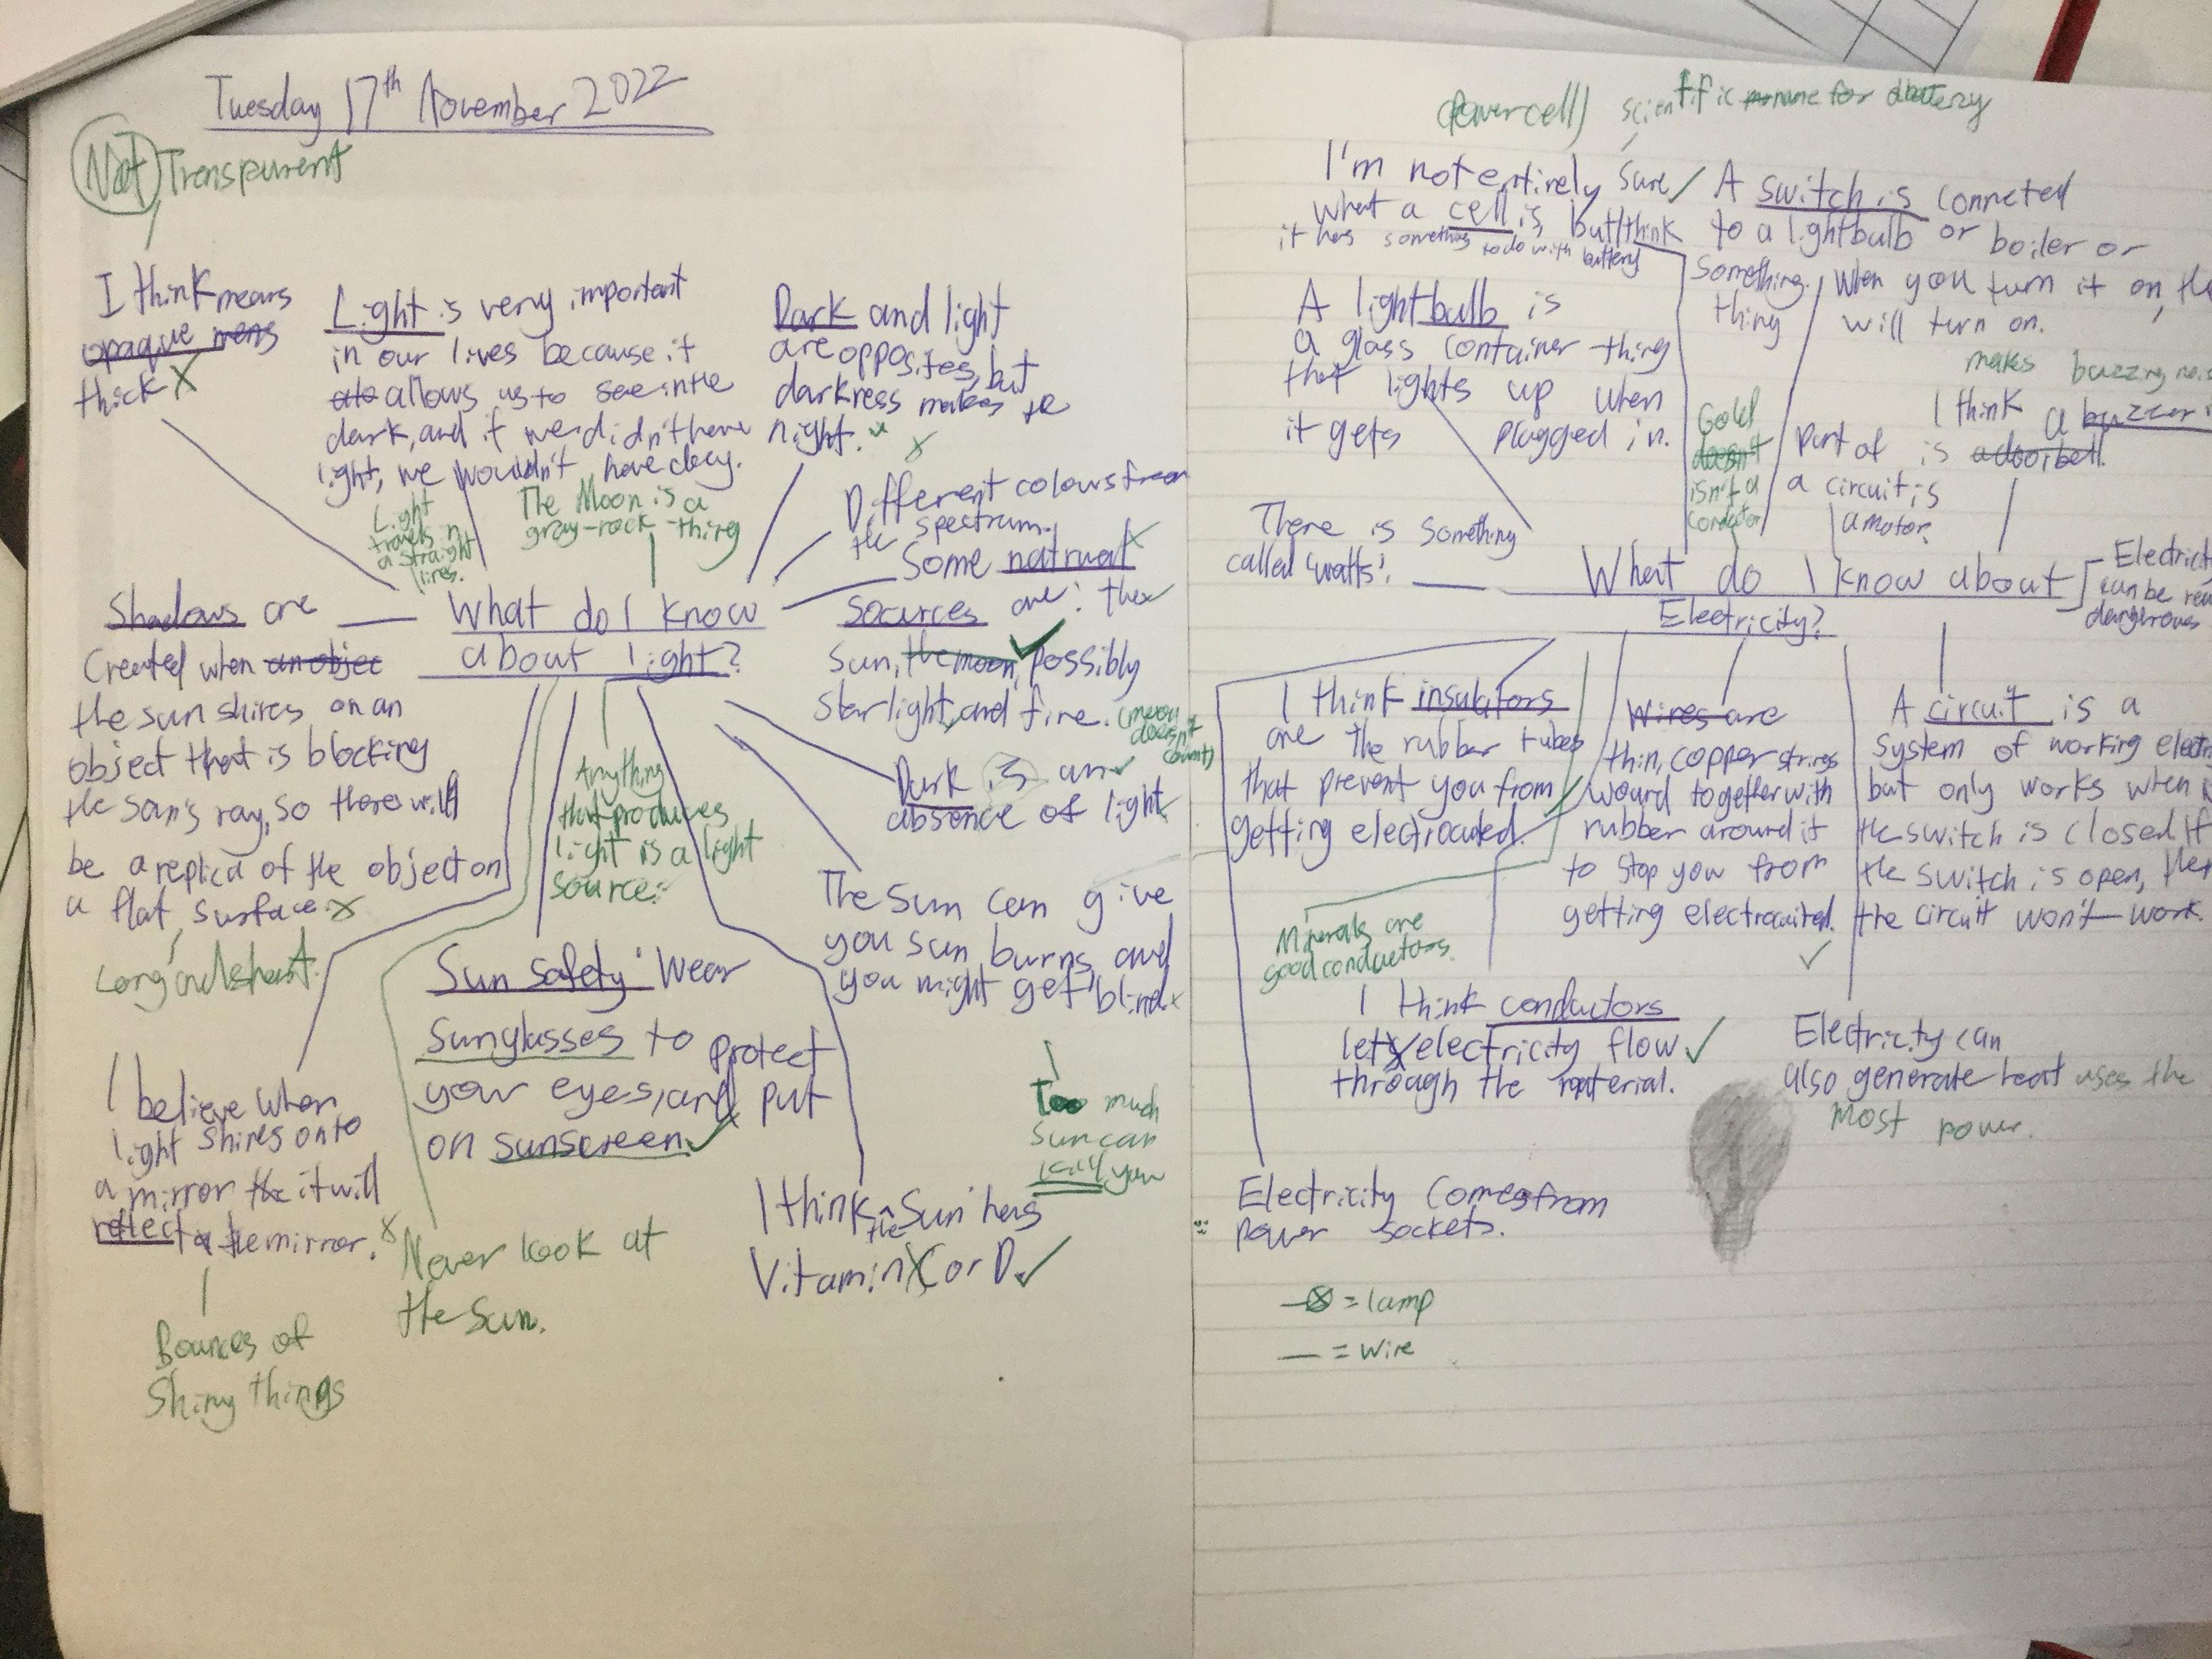 Tuesday 17th November 2022
Not Transparent
I think means
opaque mens
thick X
Light is very important
in our lives because it
allows us to see in the
dark, and if we didn't have
light, we wouldn't have day.
Dark and light
are opposites, but
darkness makes the
night.
Light
travels in
a straight
lines.
The Moon is a
gray-rock-thing
Different colours from
the spectrum.
Some natrual
sources are: the
Sun, the moon, possibly
starlight, and fire. (moon
doesn't
count)
What do I know
about light?
Shadows are
created when an objec
the sun shines on an
object that is blocking
the sun's ray, so there will
be a replica of the object on
a flat surface.
Long and short.
Anything
that produces
light is a light
source.
Dark is an
absence of light
The sun can give
you sun burns and
you might get blind.
Too much
sun can
kill you
Sun safety: Wear
sunglasses to protect
your eyes, and put
on sunscreen.
I believe when
light shines onto
a mirror the it will
reflect the mirror.
Bounces of
Shiny things
Never look at
the sun.
I think the Sun has
Vitamin C or D.
(Power cell) scientific name for battery
I'm not entirely sure
what a cell is, but I think
it has something to do with battery
A switch is connected
to a lightbulb or boiler or
something. When you turn it on, the
thing will turn on.
A lightbulb is
a glass container thing
that lights up when
it gets plugged in.
Gold
doesn't
isn't a
conductor
makes buzzing
I think a buzzer
is a doorbell.
Part of
a circuit is
a motor.
There is something
called 'watts'.
What do I know about
Electricity?
Electricit
can be
dangerous
I think insulators
are the rubber tubes
that prevent you from
getting electrocuted.
Wires are
thin, copper strings
wound together with
rubber around it
to stop you from
getting electrocuted.
A circuit is a
system of working
but only works when
the switch is closed. If
the switch is open, then
the circuit won't work.
Minerals are
good conductors.
I think conductors
lets electricity flow
through the material.
Electricity can
also generate heat uses the
most power.
Electricity comes from
power sockets.
= lamp
= wire